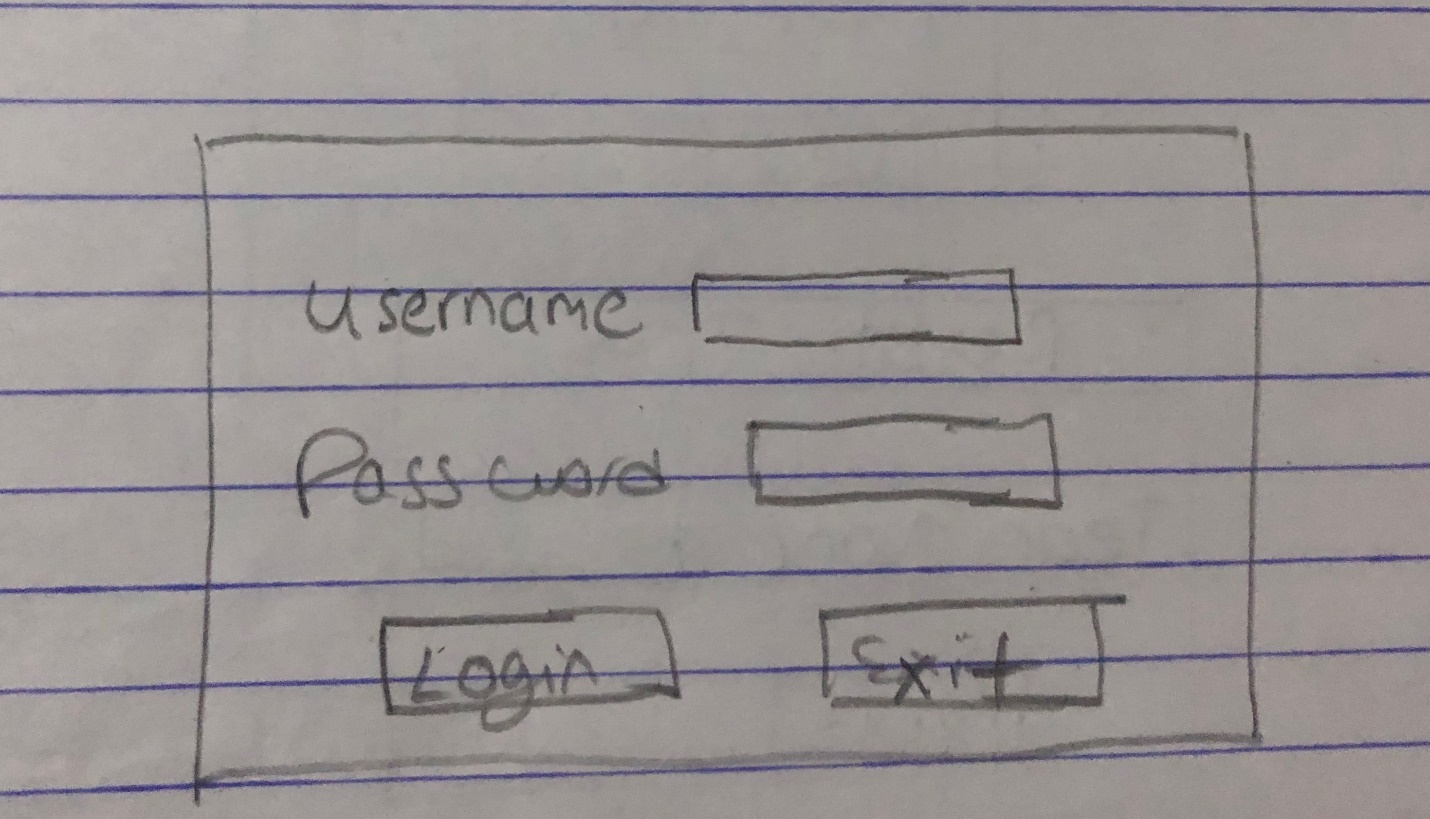 Username
Password
Login Exit